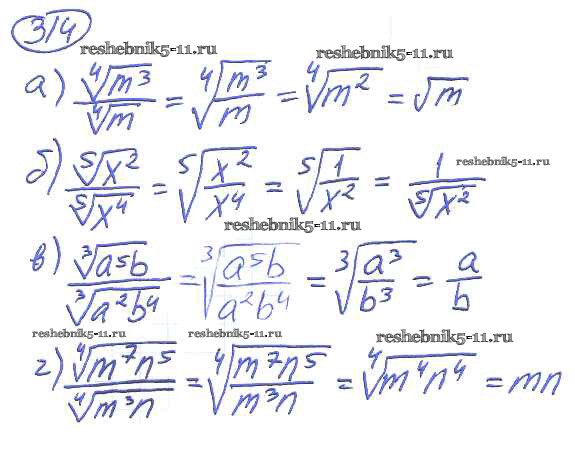 314
reshebnik5-11.ru reshebnik5-11.ru
а) ⁴√m³ / ⁴√m = ⁴√(m³/m) = ⁴√m² = √m
б) ⁵√x² / ⁵√x⁴ = ⁵√(x²/x⁴) = ⁵√(1/x²) = 1/⁵√x² reshebnik5-11.ru
reshebnik5-11.ru
в) ³√a⁵b / ³√a²b⁴ = ³√(a⁵b/a²b⁴) = ³√(a³/b³) = a/b
reshebnik5-11.ru reshebnik5-11.ru reshebnik5-11.ru
г) ⁴√m⁷n⁵ / ⁴√m³n = ⁴√(m⁷n⁵/m³n) = ⁴√m⁴n⁴ = mn